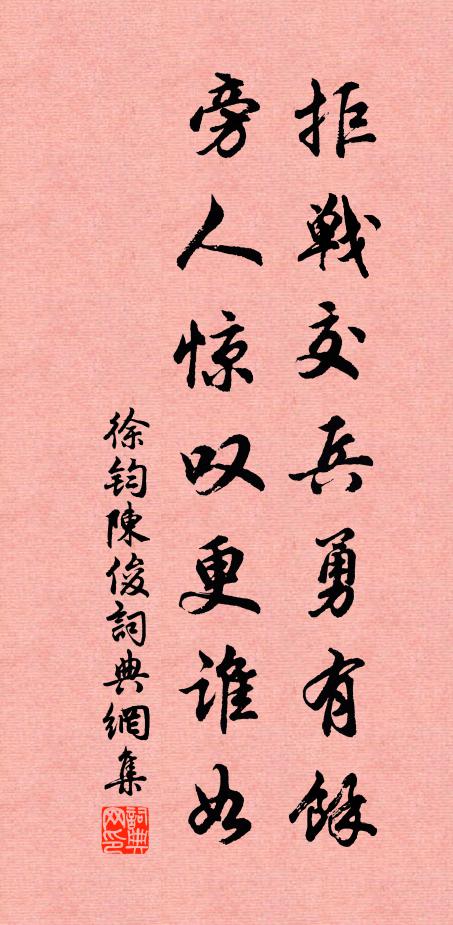 拒戰交兵勇有餘
旁人惊叹更誰如
徐鈞陳俊詞典網集
詞典网印